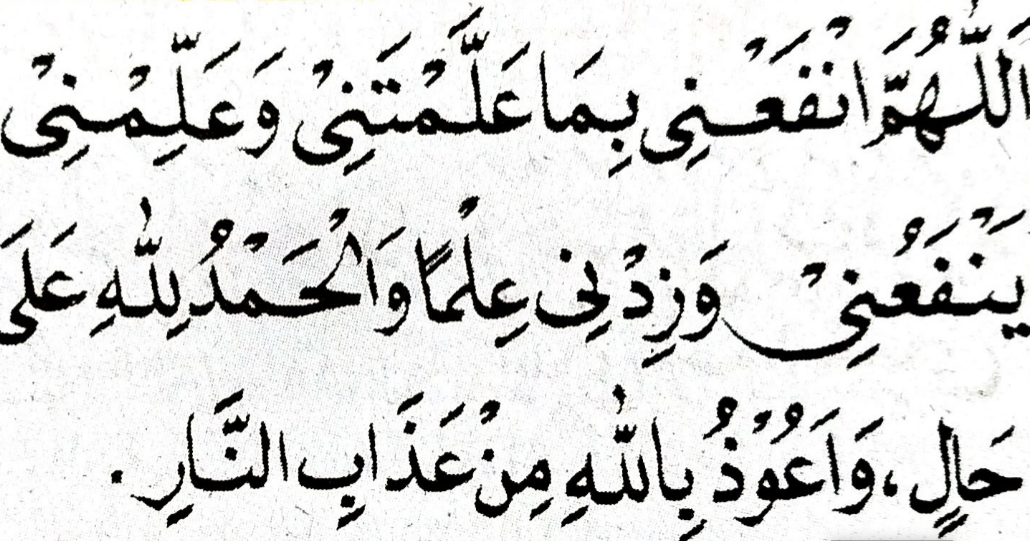 اَللّٰهُمَّ انْفَعْنِى بِمَا عَلَّمْتَنِىْ وَعَلِّمْنِىْ
يَنْفَعُنِىْ وَزِدْنِى عِلْمًا وَالْحَمْدُ لِلّٰهِ عَلَى
حَالٍ، وَاَعُوْذُ بِاللّٰهِ مِنْ عَذَابِ النَّارِ.